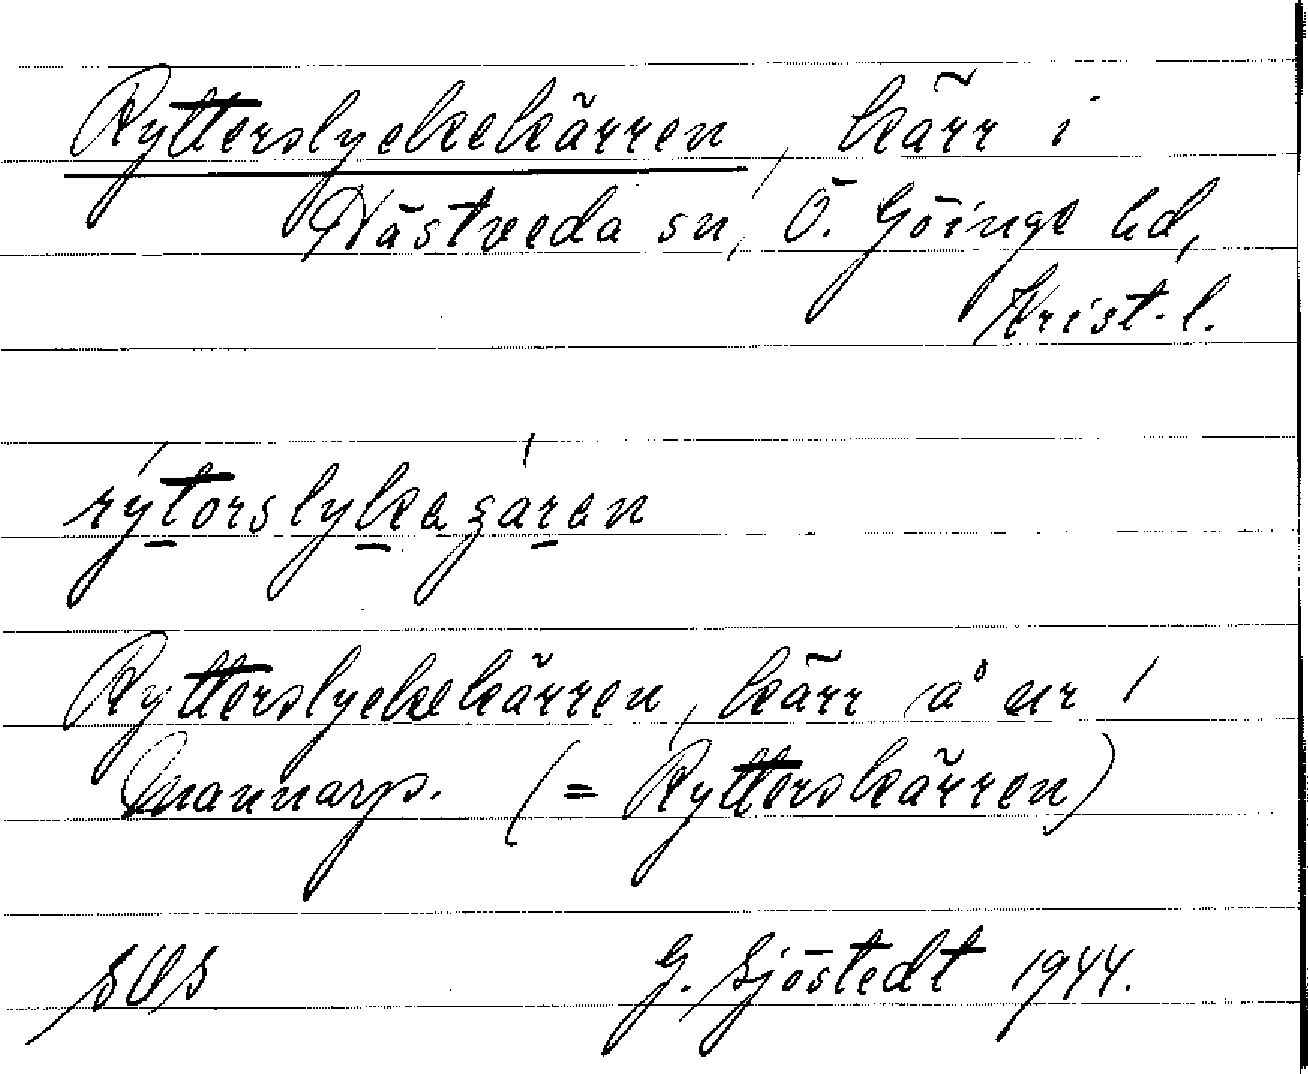 Rytterslyckekärren, kärr i
Hästveda sn, Ö. Göinge hd,
Krist. l.
Rytterslyckekärren, kärr å nr 1
Mannarp. (= Rytterskärren)
SOS G. Sjöstedt 1944.